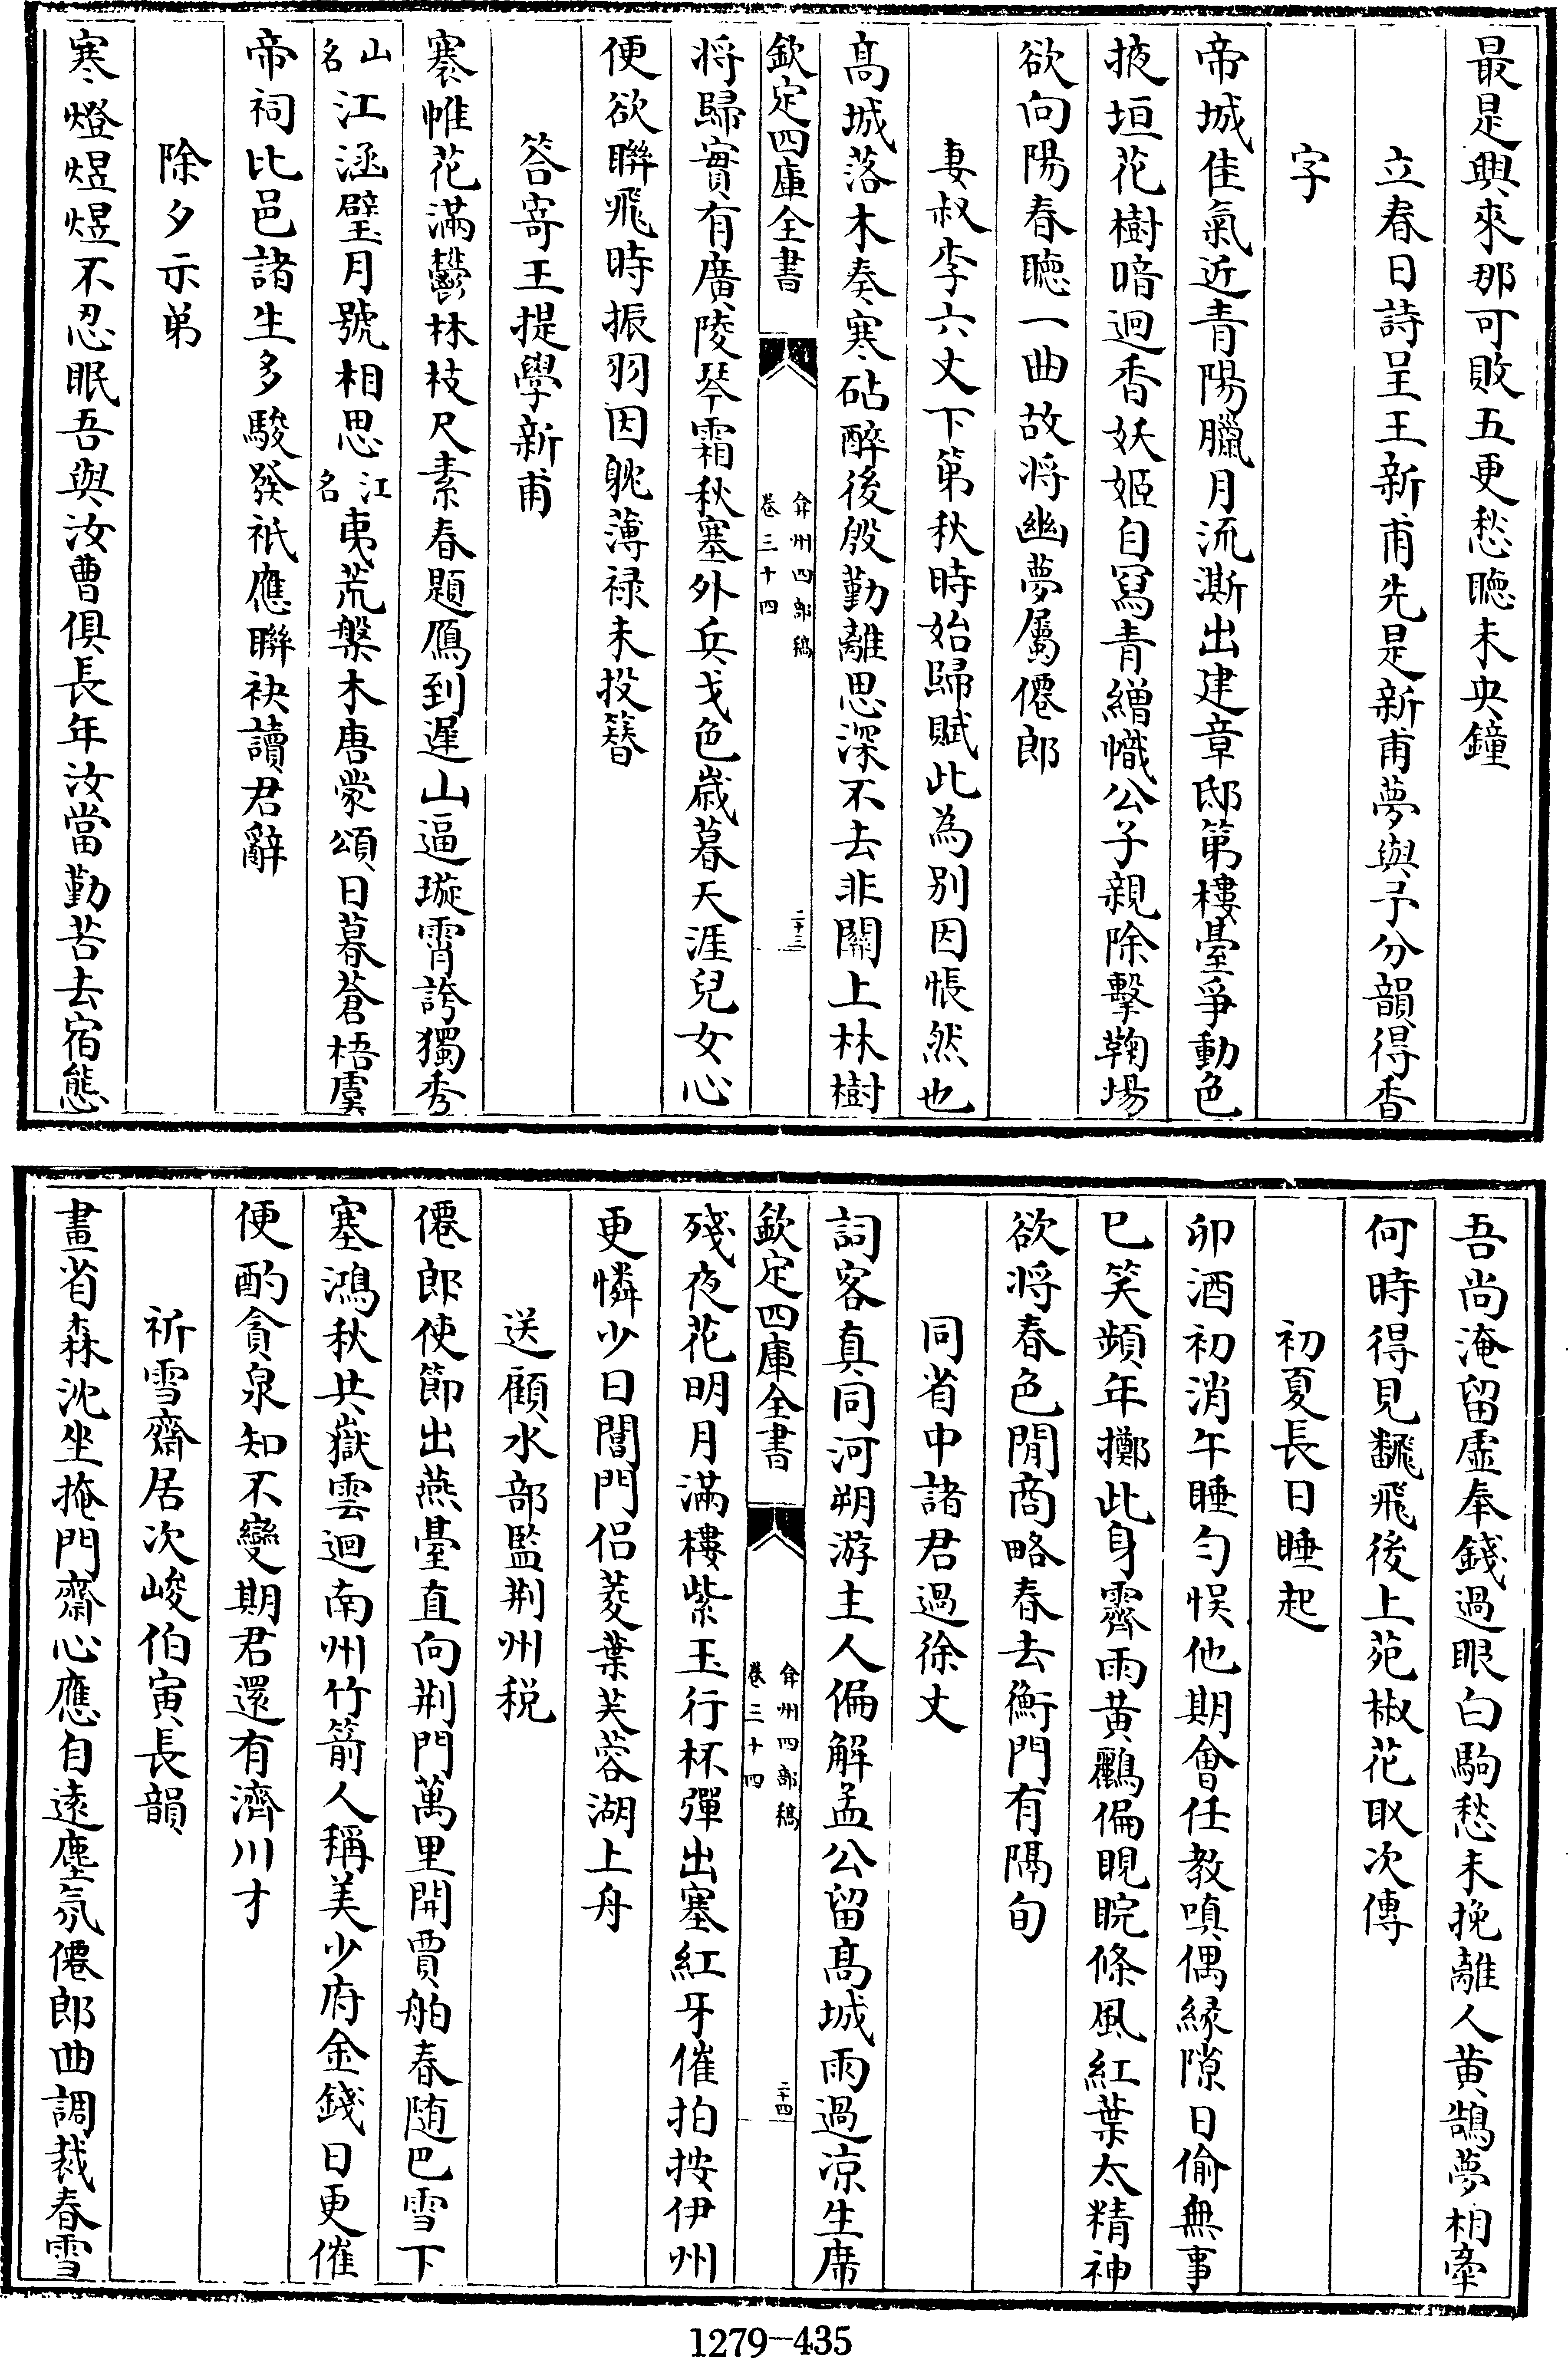 最是興來那可敗五更愁聽未央鐘
立春日詩呈王新甫先是新甫夢與予分韻得香
字
帝城佳氣近青陽臘月流澌出建章邸第樓臺爭動色
掖垣花樹暗迴香妖姬自冩青繒幟公子親除擊鞠場
欲向陽春聽一曲故将幽夢屬僊郎
妻叔李六丈下第秋時始歸賦此為别因悵然也
髙城落木奏寒砧醉後殷勤離思深不去非關上林樹
欽定四庫全書
弇州四部稿
卷三十四
二十三
将歸實有廣陵琴霜秋塞外兵戈色嵗暮天涯兒女心
便欲聯飛時振羽因躭薄禄未投簪
答寄王提學新甫
褰帷花滿鬱林枝尺素春題鴈到遲山逼璇霄誇獨秀
山名江涵璧月號相思江名夷荒槃木唐蒙頌日暮蒼梧虞
帝祠比邑諸生多駿發祇應聯袂讀君辭
除夕示弟
寒燈煜煜不忍眠吾與汝曹俱長年汝當勤苦去宿態
吾尚淹留虚奉錢過眼白駒愁未挽離人黄鵠夢相牽
何時得見翻飛後上苑椒花取次傳
初夏長日睡起
卯酒初消午睡勻悮他期會任教嗔偶緣隙日偷無事
已笑頻年擲此身霽雨黄鸝偏睍睆條風紅葉太精神
欲将春色閒商略春去衡門有隔旬
同省中諸君過徐丈
詞客真同河朔游主人偏解孟公留髙城雨過凉生席
欽定四庫全書
弇州四部稿
卷三十四
二十四
殘夜花明月滿樓紫玉行杯彈出塞紅牙催拍按伊州
更憐少日閶門侶菱葉芙蓉湖上舟
送顧水部監荆州税
僊郎使節出燕臺直向荆門萬里開賈舶春随巴雪下
塞鴻秋共嶽雲迴南州竹箭人稱美少府金錢日更催
便酌貪泉知不變期君還有濟川才
祈雪齋居次峻伯寅長韻
畫省森沈坐掩門齋心應自遠塵氛僊郎曲調裁春雪
1279-435